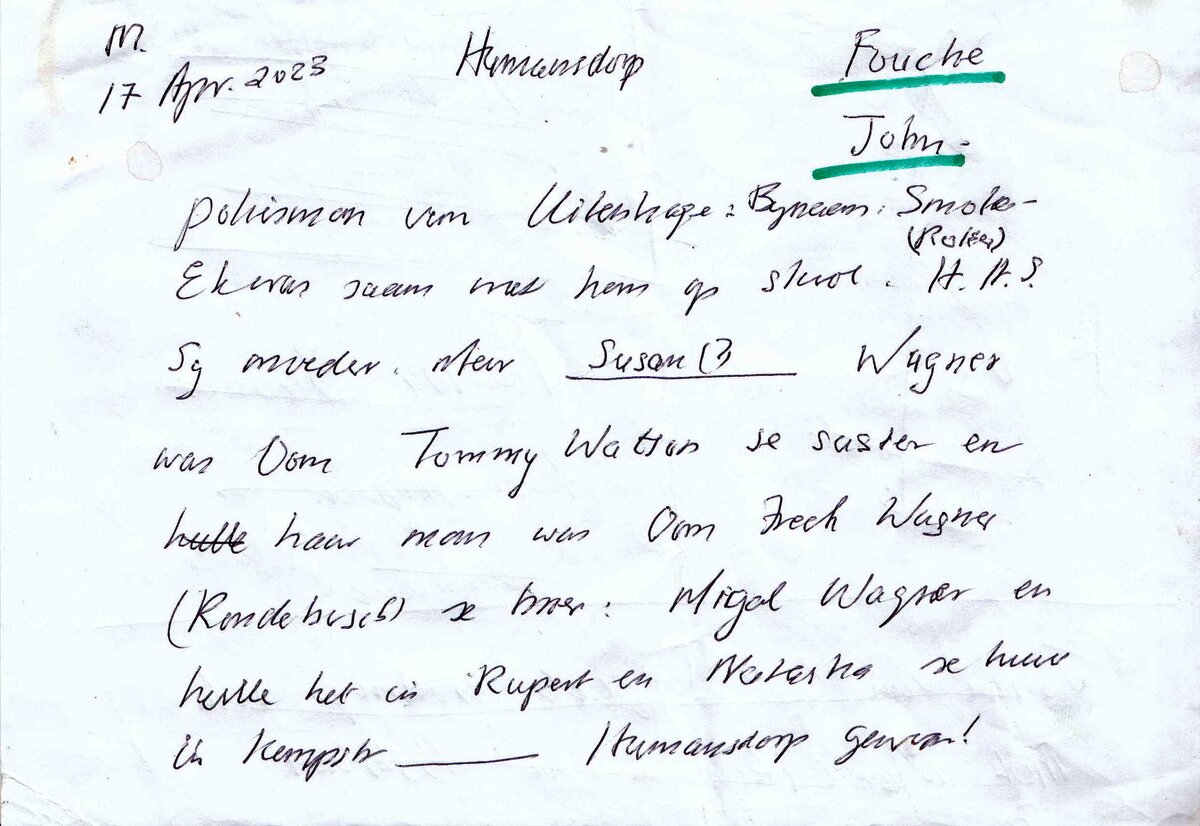 M.
17 Apr. 2023 Humansdorp Fouche
John.
polisman van Uitenhage: Bynaam: Smoks-
Ek was saam met hom op skool. H.H.S.
Sy moeder. Susan(B Wagner
was Oom Tommy Watson se suster en
hulle haar man was Oom Freek Wagner
(Rondebosch) se broer: Migal Wagner en
hulle het in Rupert en Natasha se huis
in Kempstr Humansdorp gewoon!